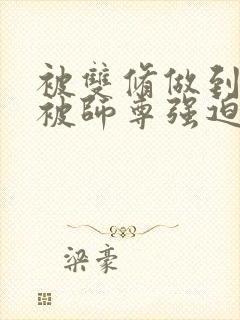 被雙脩做到
被師尊强迫
梁豪